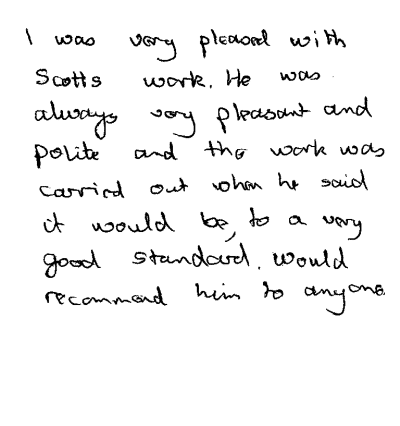 I was very pleased with
Scotts work. He was
always very pleasant and
polite and the work was
carried out when he said
it would be, to a very
good standard. Would
recommend him to anyone.